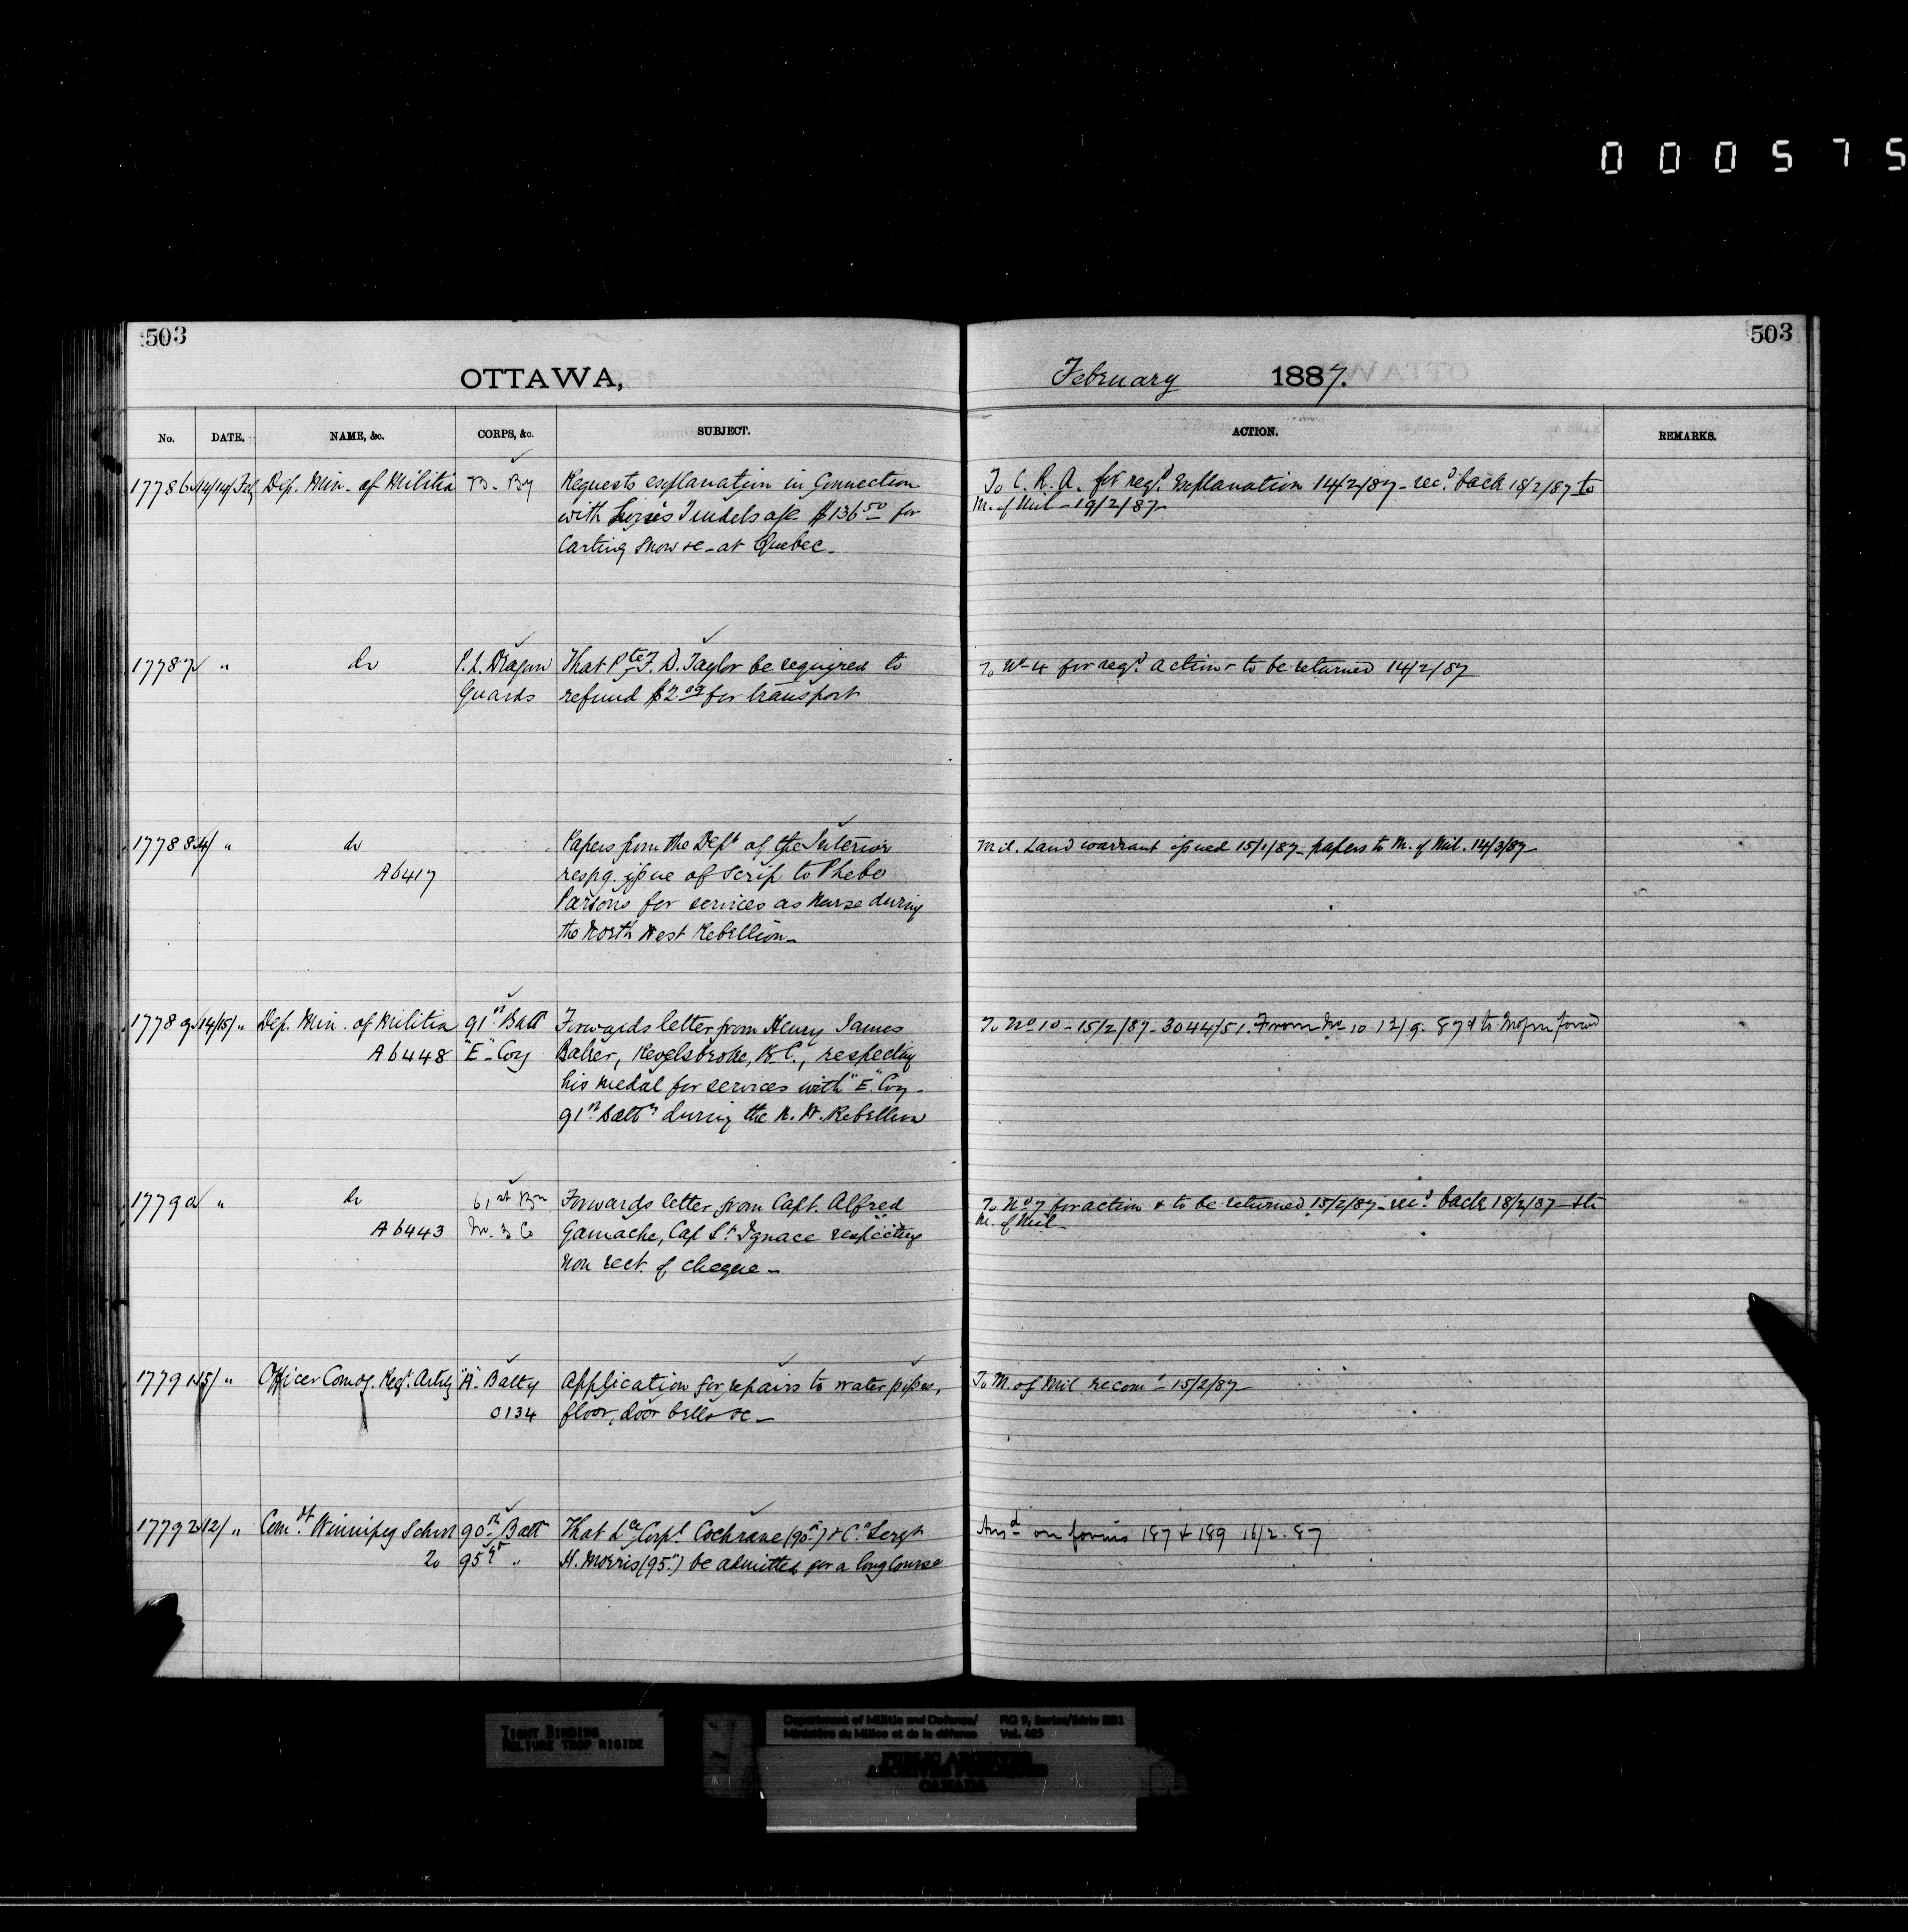 000575
503
503
OTTAWA,
February 1887.
No. DATE. NAME, &c. CORPS, &c. SUBJECT. ACTION. REMARKS.
17786 14/14/Feb Dep. Min. of Militia B. By Requests explanation in Connection
with Tindels a/c $136.50 for
Carting Snow &c - at Quebec -
To C. R. A. for reqd. Explanation 14/2/87 - recd. back 18/2/87 to
M. of Mil - 19/2/87
17787 " do P.L. Dragon That Pte F. D. Taylor be required to
Guards refund $2.00 for transport
To No 4 for reqd. action & to be returned 14/2/87
17788 14/ " do Papers from the Dept of the Interior
A6417 respg. issue of scrip to Phebe
Parsons for services as Nurse during
the North West Rebellion -
Mil. Land warrant issued 15/1/87 - papers to M. of Mil. 14/3/87
17789 14/15/ " Dep. Min. of Militia 91st Batt Forwards letter from Henry James
A6448 "E" Coy Baker, B.C., respecting
his medal for services with "E" Coy -
91st Battn during the N. W. Rebellion
To No 10 - 15/2/87 - 3044/51. From No 10 12/9. 87 & to
17790 " do 61st Bn Forwards letter from Capt. Alfred
A6443 No. 3 Co Gamache, Cap St. Ignace respecting
non rect. of cheque -
To No 7 for action & to be returned 15/2/87 - recd. back 18/2/87 - &
M. of Mil -
17791 15/ " Officer Comdg. Regt. Artily "A" Batty Application for repairs to water pipes,
0134 floor, door bells &c -
To M. of Mil recomd 15/2/87
17792 12/ " Comdt Winnipeg School 90th Batt That Lce Corpl Cochrane (90th) & Cr. Sergt
20 95th " H. Morris (95th) be admitted for a long Course
Ansd on forms 187 & 189 16/2.87
TIGHT BINDING
RELIURE TROP RIGIDE
Department of Militia and Defence/ RG 9, Series/Série IIB1
Ministère du Milice et de la défense Vol. 485
PUBLIC ARCHIVES
ARCHIVES PUBLIQUES
CANADA